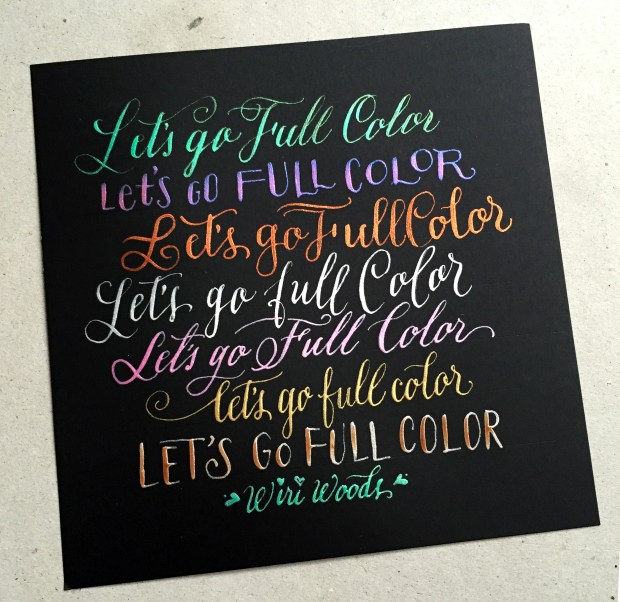 Let's go Full Color
LET'S GO FULL COLOR
Let's go Full Color
Let's go full Color
Let's go Full Color
let's go full color
LET'S GO FULL COLOR
Wiri Woods